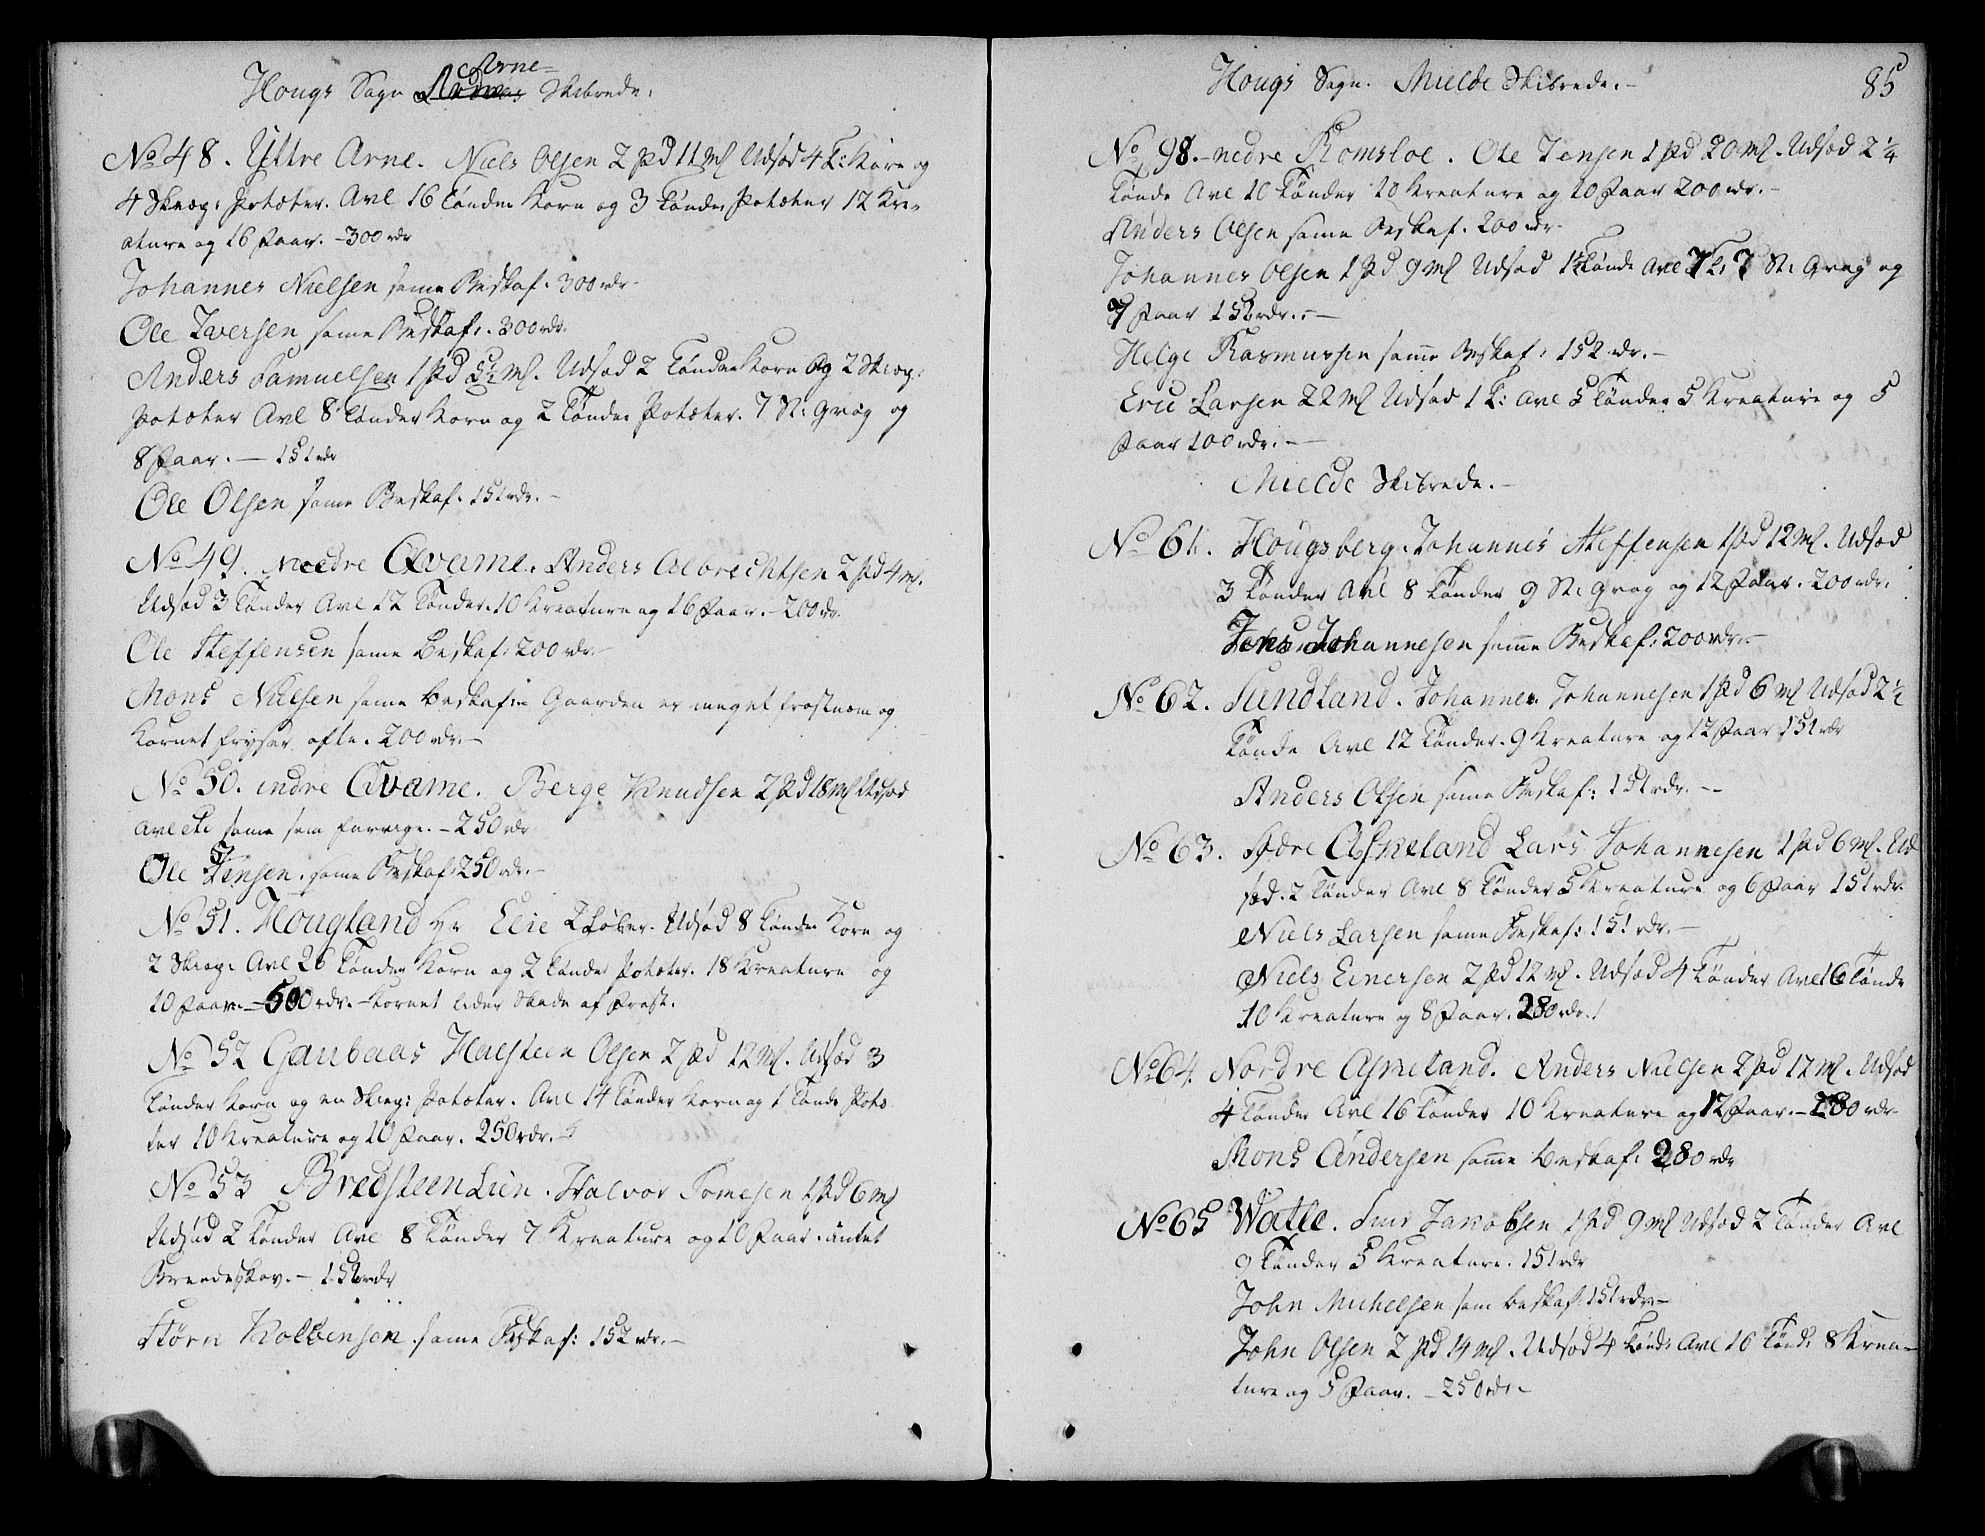 Arne-
Hougs Sogn Skibrede.
No 48. Yttre Arne. Niels Olsen 2 pd 11 Ml Udsød 4 T: Korn og
4 Skiep: Potæter. Avl 16 Tønder Korn og 3 Tønder Potæter 12 Kre-
ature og 16 Faar. - 300 rdr
Johannes Nielsen same Beskaf. 300 rdr.
Ole Iversen same Beskaf. 300 rdr.
Anders Samuelsen 1 pd 5½ Ml. Udsød 2 Tønder Korn og 2 Skiep:
Potæter Avl 8 Tønder Korn og 2 Tønder Potæter. 7 St: Qvæg og
8 Faar. - 151 rdr
Ole Olsen same Beskaf. 151 rdr. -
No 49. nedre Qvame. Anders Albrechtsen 2 pd 4 Ml.
Udsød 3 Tønder Avl 12 Tønder. 10 Kreature og 16 Faar. - 200 rdr.
Ole Steffensen same Beskaf: 200 rdr. -
Mons Nielsen same Beskaf: Gaarden er meget frostnem og
Kornet fryser ofte. 200 rdr. -
No 50. indre Qvame. Berge Knudsen 2 pd 18 Ml Udsød
Avl etc same som forrige. - 250 rdr
Ole Jensen. same Beskaf: 250 rdr. -
No 51. Hougland Hr Elie 2 Løber. Udsød 8 Tønder Korn og
2 Skiep: Avl 26 Tønder Korn og 2 Tønder Potæter. 18 Kreature og
10 Faar. - 500 rdr. - Kornet lider Skade af Frost.
No 52 Gaubaas Halsteen Olsen 2 pd 12 Ml. Udsød 3
Tønder Korn og en Skiep: Potæter. Avl 14 Tønder Korn og 1 Tønde Potæ
ter 10 Kreature og 10 Faar. 250 rdr.
No 53 BredsteenLien. Halvor Tomesen 1 pd 6 Ml
Udsød 2 Tønder Avl 8 Tønder 7 Kreature og 10 Faar. intet
Brendeskov. - 152 rdr
Størn Kolbensen. same Beskaf: 152 rdr. -
Hougs Sogn. Mielde Skibrede. -
85
No 98. nedre Romsloe. Ole Jensen 1 pd 20 Ml. Udsød 2 ¼
Tønde Avl 10 Tønder 10 Kreature og 10 Faar 200 rdr. -
Anders Olsen same Beskaf. 200 rdr.
Johannes Olsen 1 pd 9 Ml Udsød 1½ Tønde Avl 7 T: 7 St: Qvæg og
7 Faar 152 rdr. -
Helge Rasmussen same Beskaf: 152 rdr. -
Eric Larsen 22 Ml Udsød 1 T: Avl 5 Tønder 5 Kreature og 5
Faar 100 rdr. -
Mielde Skibrede. -
No 61. Hougsberg. Johannes Steffensen 1 pd 12 Ml. Udsød
3 Tønder Avl 8 Tønder 9 St: Qvæg og 12 Faar. 200 rdr.
Johannesen same Beskaf: 200 rdr. -
No 62. Sundland. Johannes Johannesen 1 pd 6 Ml Udsød 2 ½
Tønde Avl 12 Tønder. 9 Kreature og 12 Faar 151 rdr
Anders Olsen same Beskaf: 151 rdr. -
No 63. Sødre Asheland Lars Johannesen 1 pd 6 Ml. Ud
sød. 2 Tønder Avl 8 Tønder 5 Kreature og 6 Faar 151 rdr.
Niels Larsen same Beskaf: 151 rdr. -
Niels Einersen 2 pd 12 Ml. Udsød 4 Tønder Avl 16 Tønde
10 Kreature og 8 Faar. 280 rdr. /
No 64. Nordre Asheland. Anders Nielsen 2 pd 12 Ml. Udsød
4 Tønder Avl 16 Tønder 10 Kreature og 12 Faar. - 280 rdr
Mons Andersen same Beskaf: 280 rdr
No 65 Watle. Jacobsen 1 pd 9 Ml Udsød 2 Tønder Avl
9 Tønder 5 Kreature. 151 rdr
John Michelsen sam Beskaf: 151 rdr. -
John Olsen 2 pd 14 Ml. Udsød 4 Tønde Avl 16 Tønde 8 Krea-
ture og 5 Faar. - 250 rdr. -